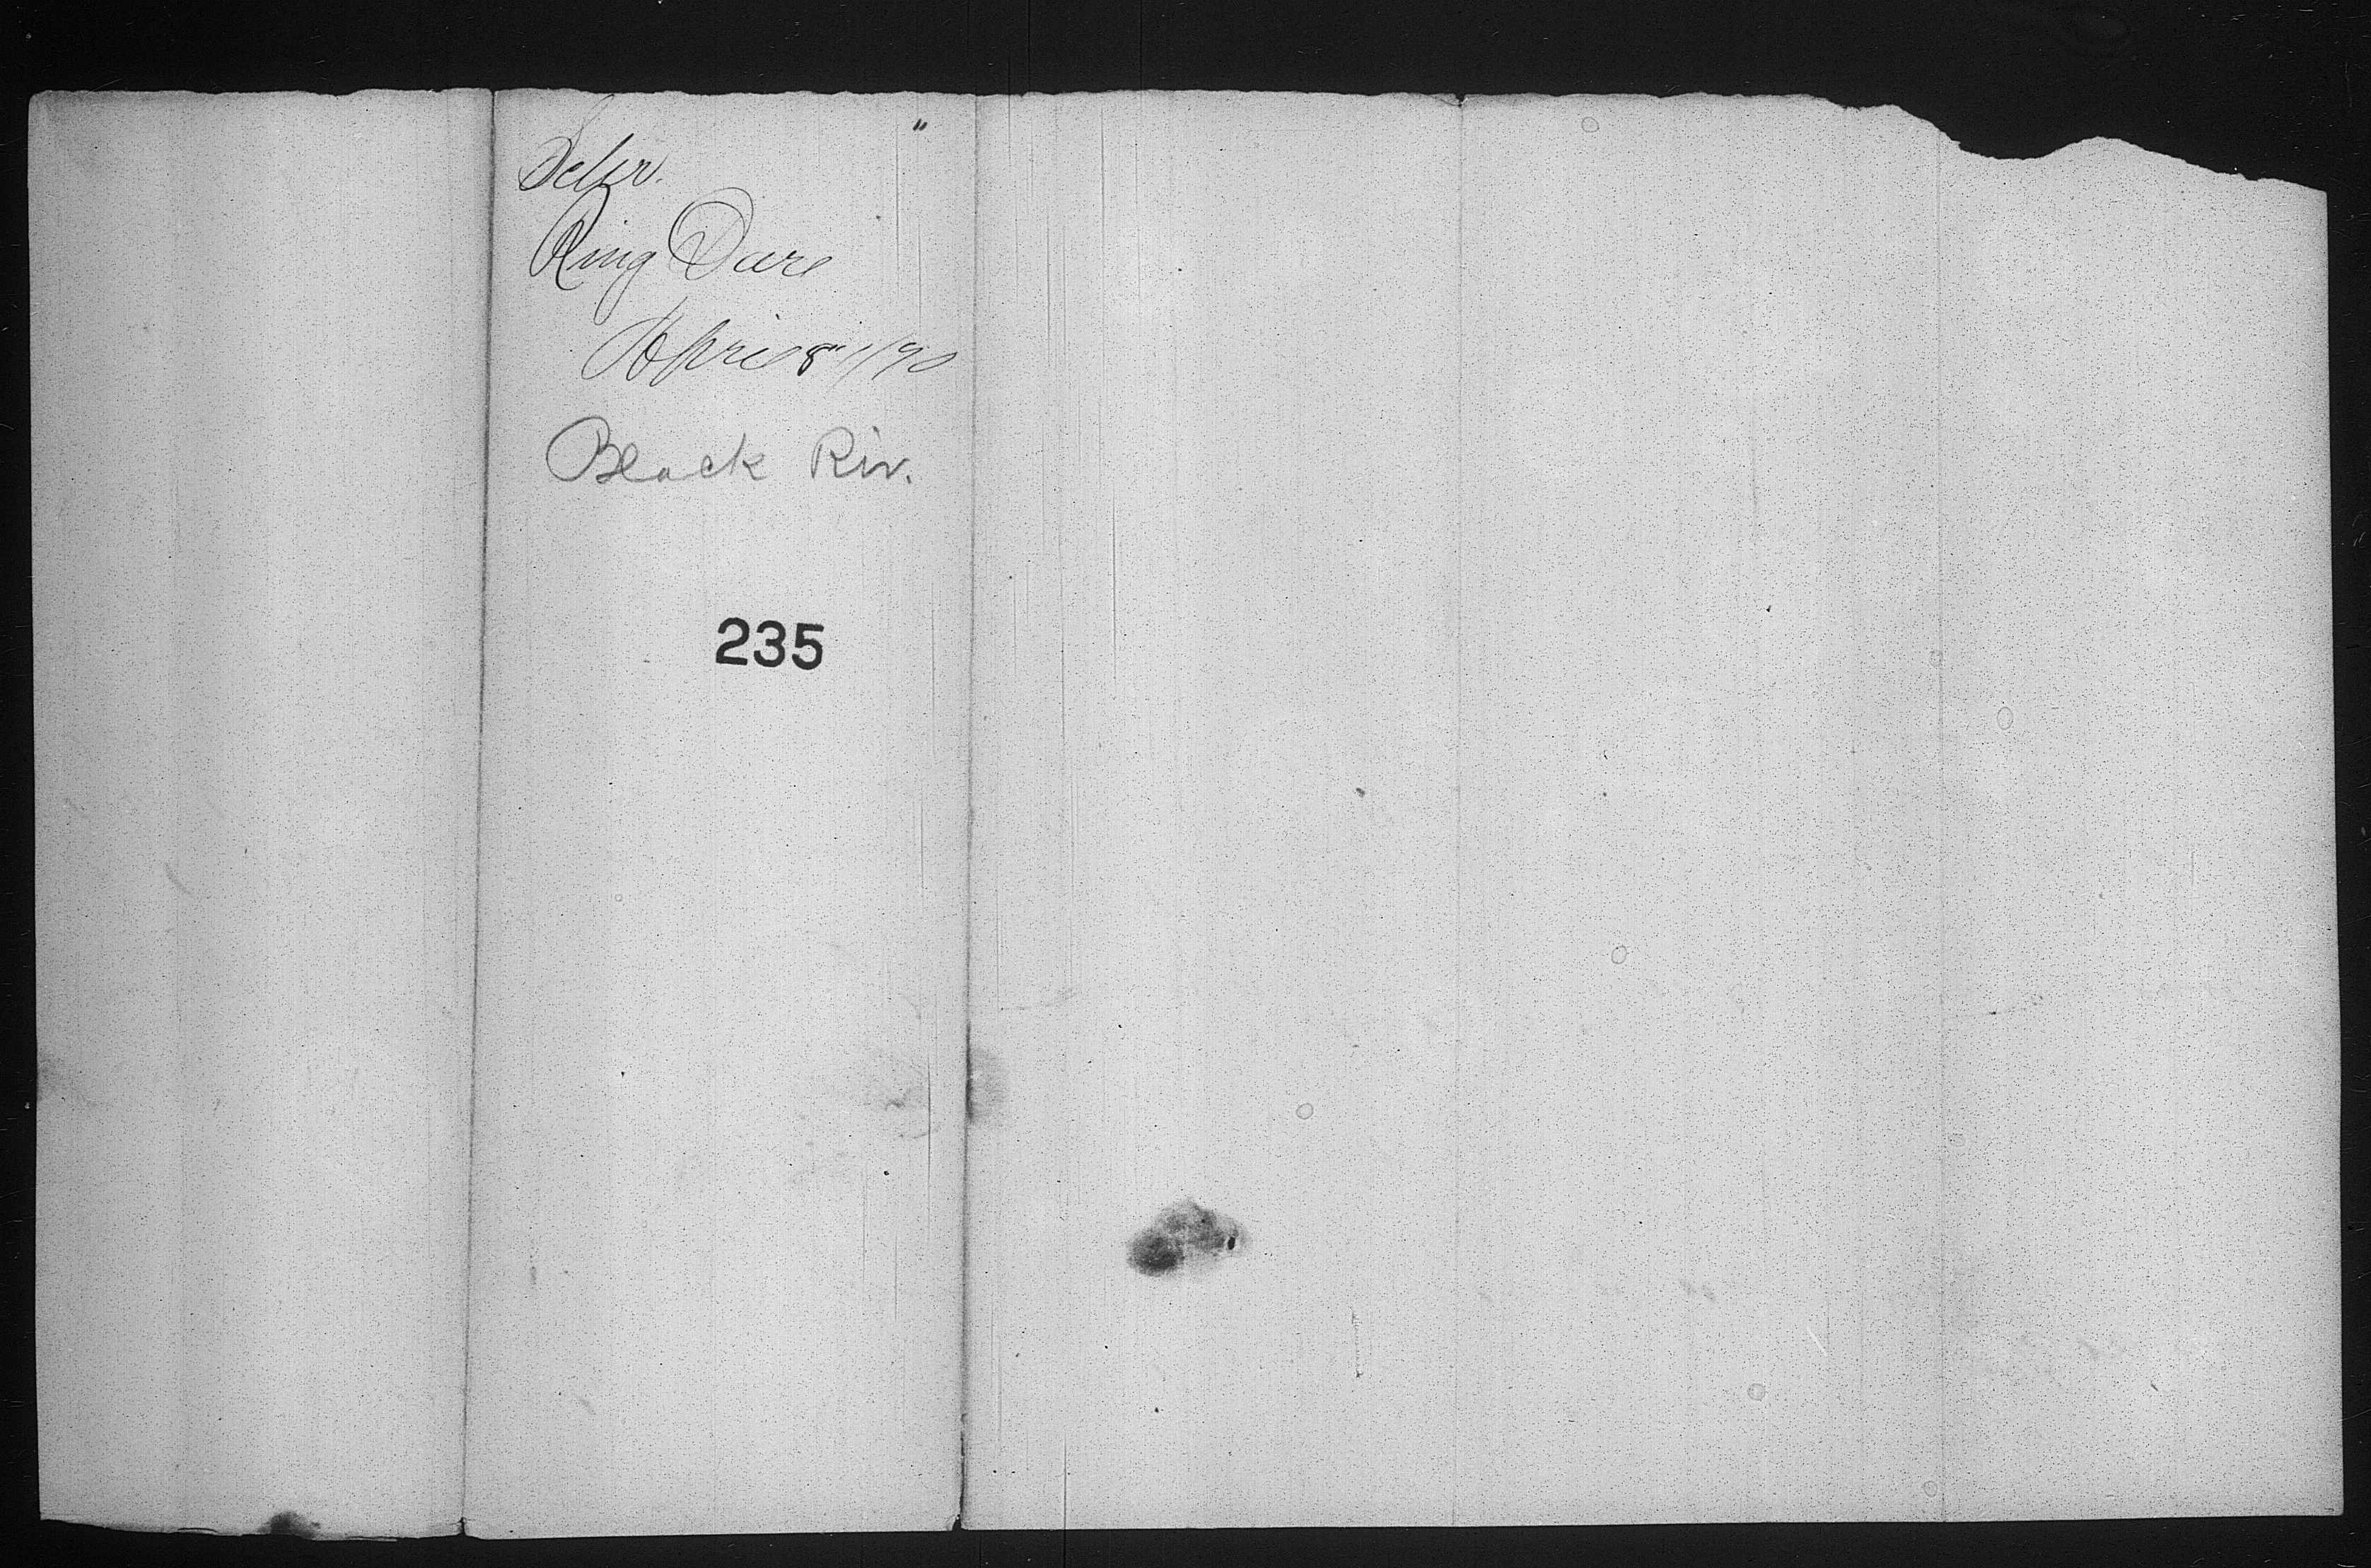 Schr.
Ring Dove
April 8" 1/90
Black Riv.
235